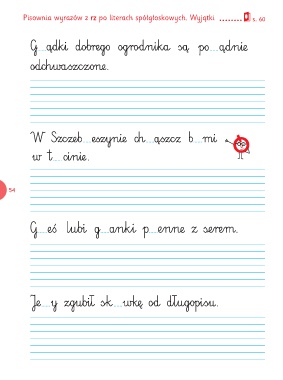 Pisownia wyrazów z rz po literach spółgłoskowych. Wyjątki ....... s. 60
G...ądki dobrego ogrodnika są po...ądnie
odchwaszczone.
W Szczeb...eszynie ch...ąszcz b...mi
w t...cinie.
54
G...eś lubi g...anki p...enne z serem.
Je...y zgubił sk...wkę od długopisu.